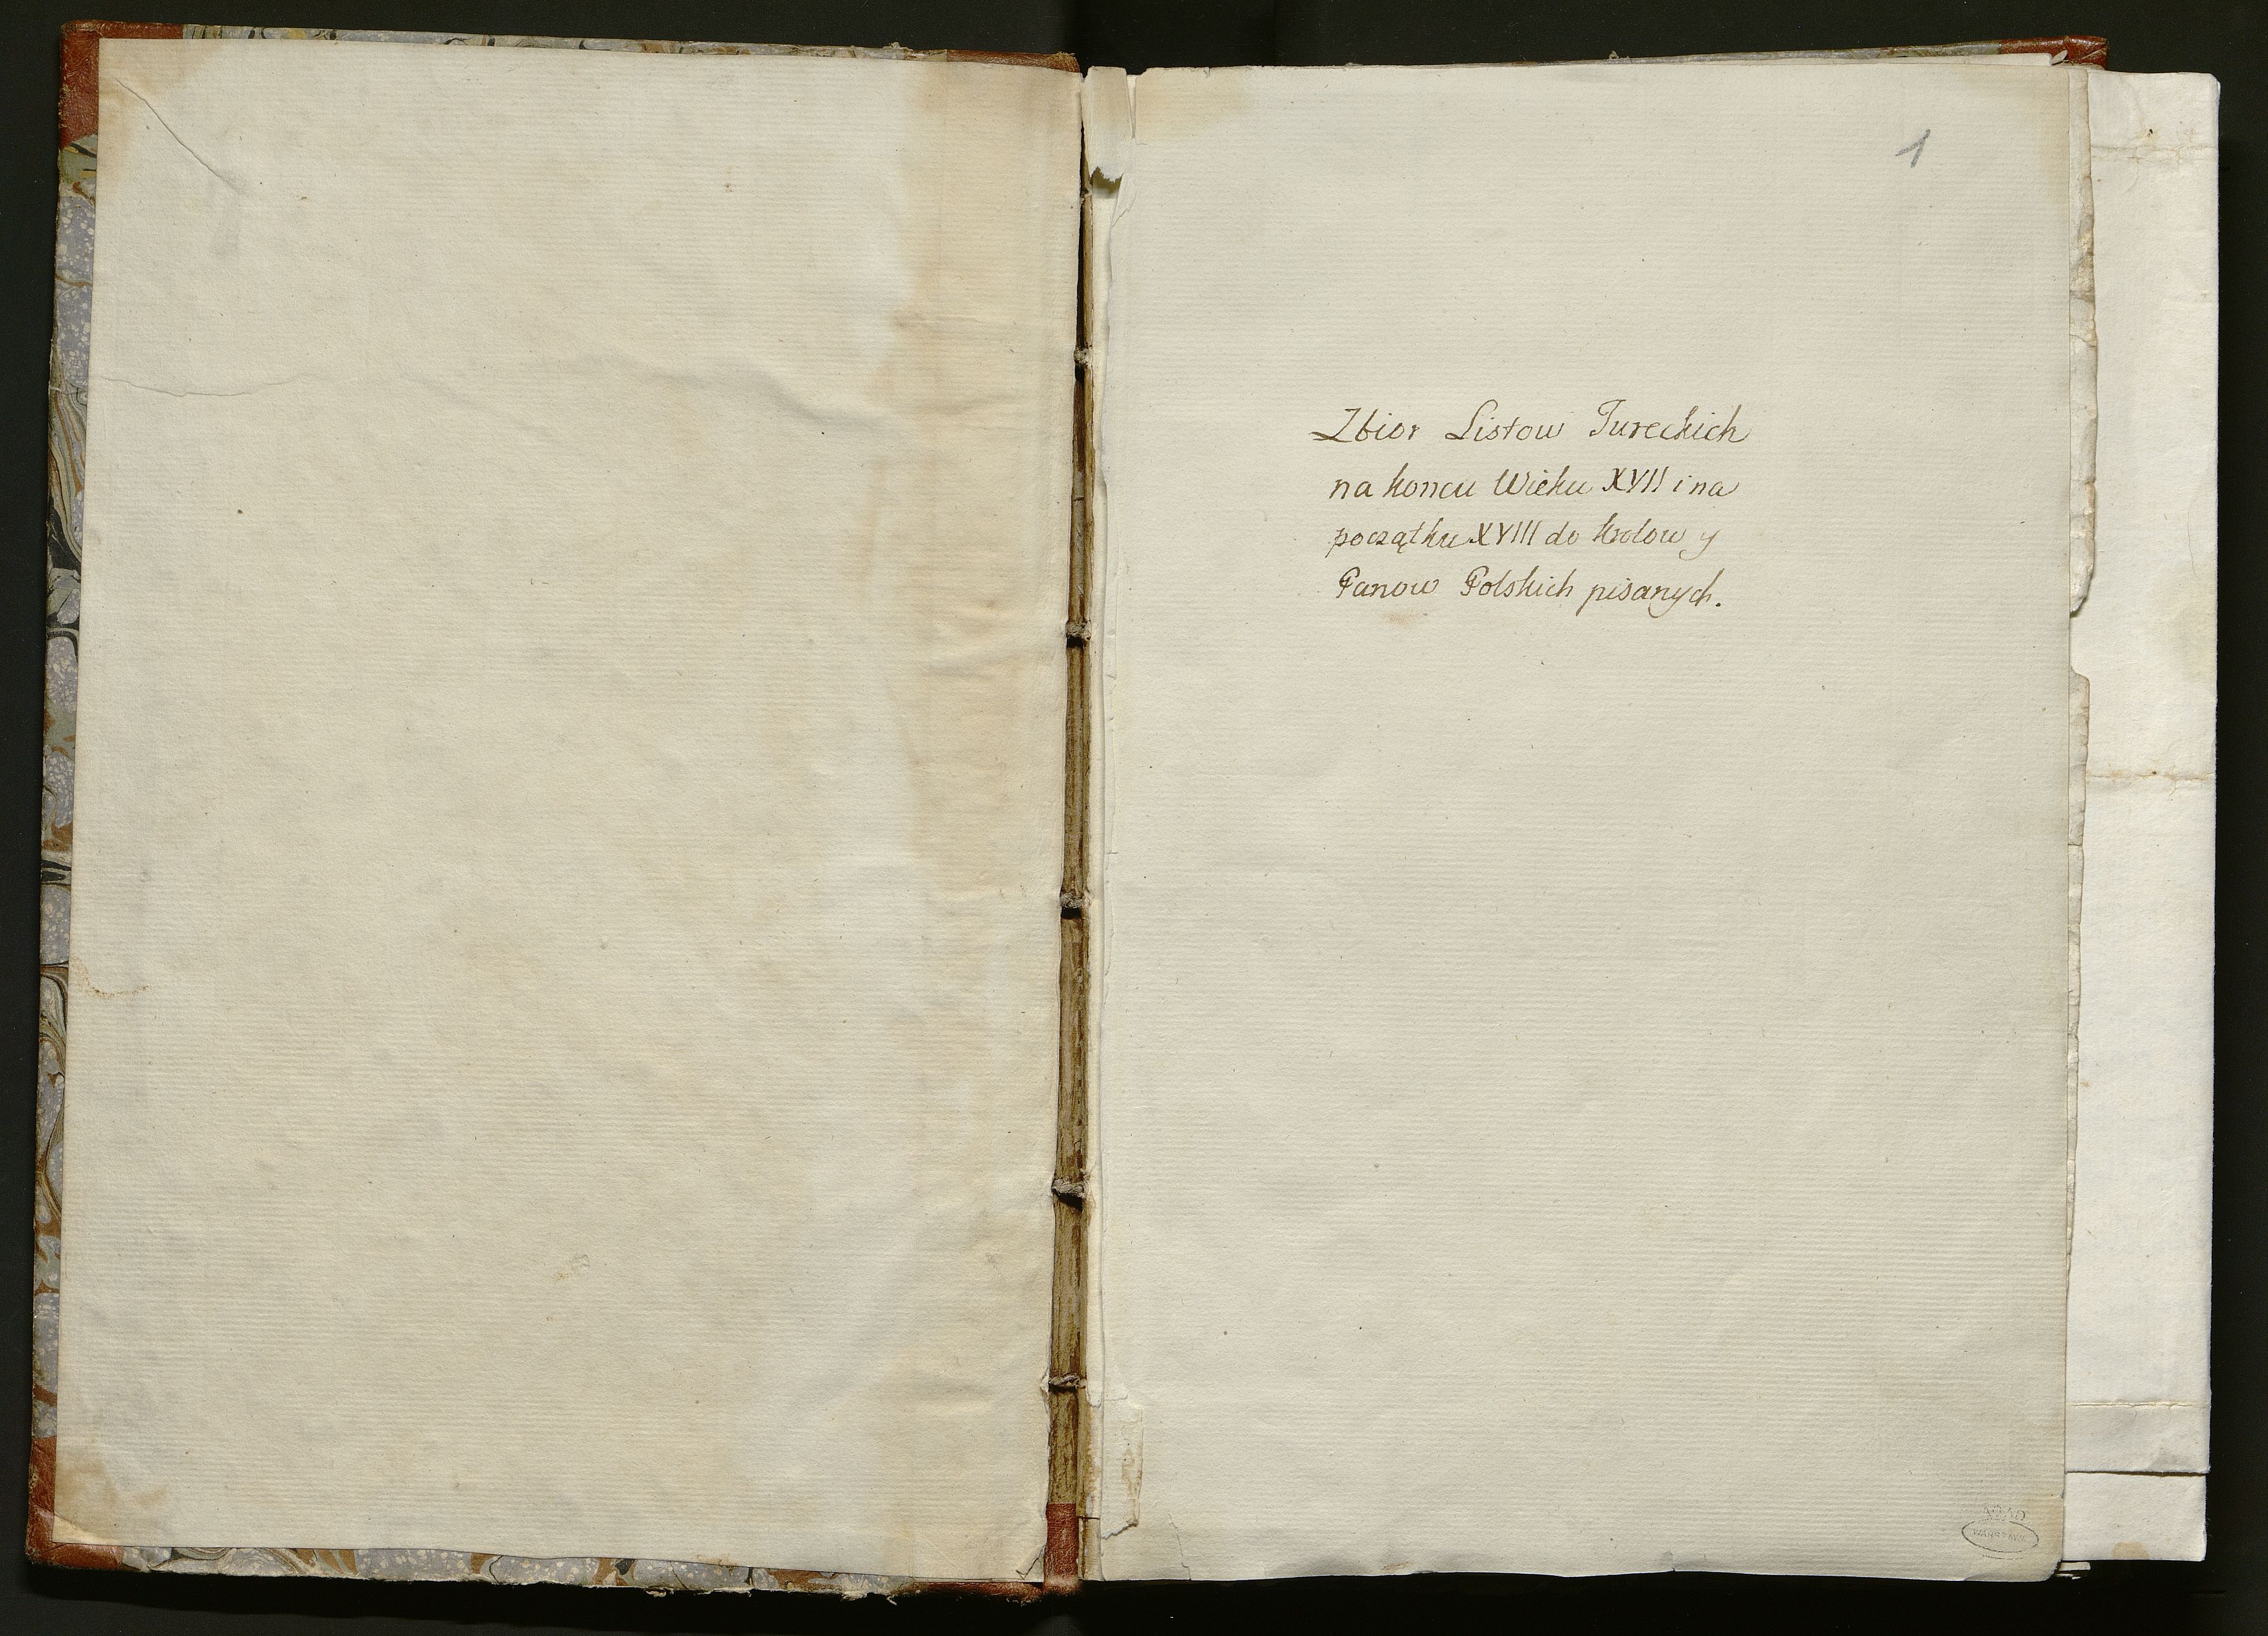 1
Zbior Listow Tureckich
na koncu Wieku XVII i na
początku XVIII do Krolow y
Panow Polskich pisanych.
AGAD
WARSZAWA